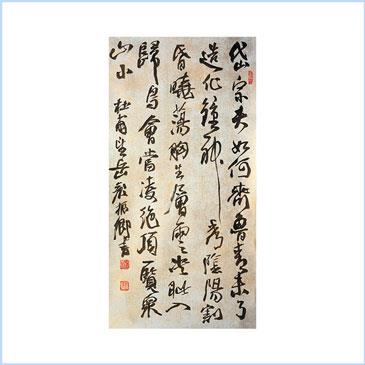 岱宗夫如何齊魯青未了
造化鍾神秀陰陽割
昏曉蕩胸生層雲決眥入
歸鳥會當凌絕頂一覽衆
山小
杜甫望岳 振鄉書